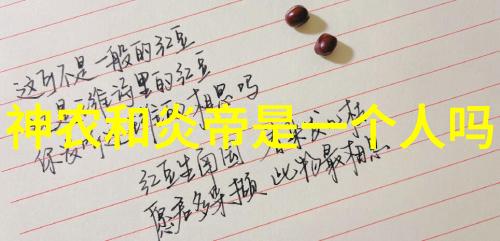 这可不是一般的红豆
是 维诗里的红豆
神农和炎帝是一个人吗
你没 相思吗
红豆生南国 春来发几枝
愿君多采撷 此物最相思